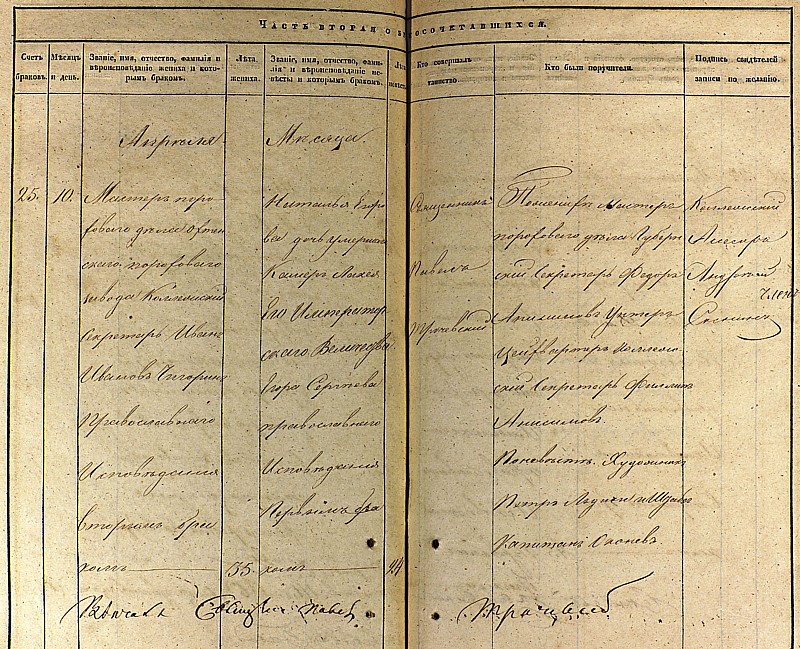 ЧАСТЬ ВТОРАЯ О БРАКОСОЧЕТАВШИХСЯ.
Счетъ браковъ.
Мѣсяцъ и день.
Званіе, имя, отчество, фамилія и
вѣроисповѣданіе жениха и кото-
рымъ бракомъ.
Лѣта
жениха.
Званіе, имя, отчество, фами-
лія и вѣроисповѣданіе не-
вѣсты и которымъ бракомъ.
Лѣта
Кто совершалъ
таинство.
Кто были поручители.
Подпись свидѣтелей
записи по желанію.
Апрѣля Мѣсяца.
25. 10.
Мастеръ поро-
ховаго дѣла Охтен-
скаго пороховаго
завода Коллежскій
Секретарь Иванъ
Ивановъ
Православнаго
Исповѣданія
вторымъ бра
комъ
35.
Наталья Егоро
ва дочь умершаго
Камеръ Лакея
Его Император
скаго Величества
Егора Сергѣева
православнаго
Исповѣданія
Первымъ бра
комъ
24
Священникъ
Павелъ
мастеръ
пороховаго дѣла Губерн
скій Секретарь Федоръ
Анисимовъ Унтеръ
Цейхвартеръ Коллеж
скій Секретарь Филипъ
Анисимовъ.
Художникъ
Петръ и Штабсъ
Капитанъ
Коллежскій
Андрей
Вѣнчалъ Священникъ Павелъ